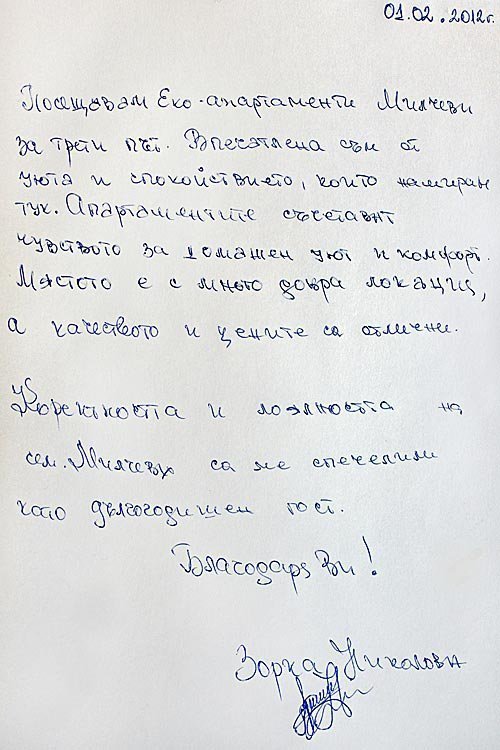 01.02.2012г.
Посещавам Еко-апартаменти Милчеви
за трети път. Впечатлена съм от
уюта и спокойствието, които намирам
тук. Апартаментите съчетават
чувството за домашен уют и комфорт.
Мястото е с много добра локация,
а качеството и цените са отлични.
Коректността и лоялността на
сем. Милчеви са ме спечелили
като дългогодишен гост.
Благодаря Ви!
Зорка Николова